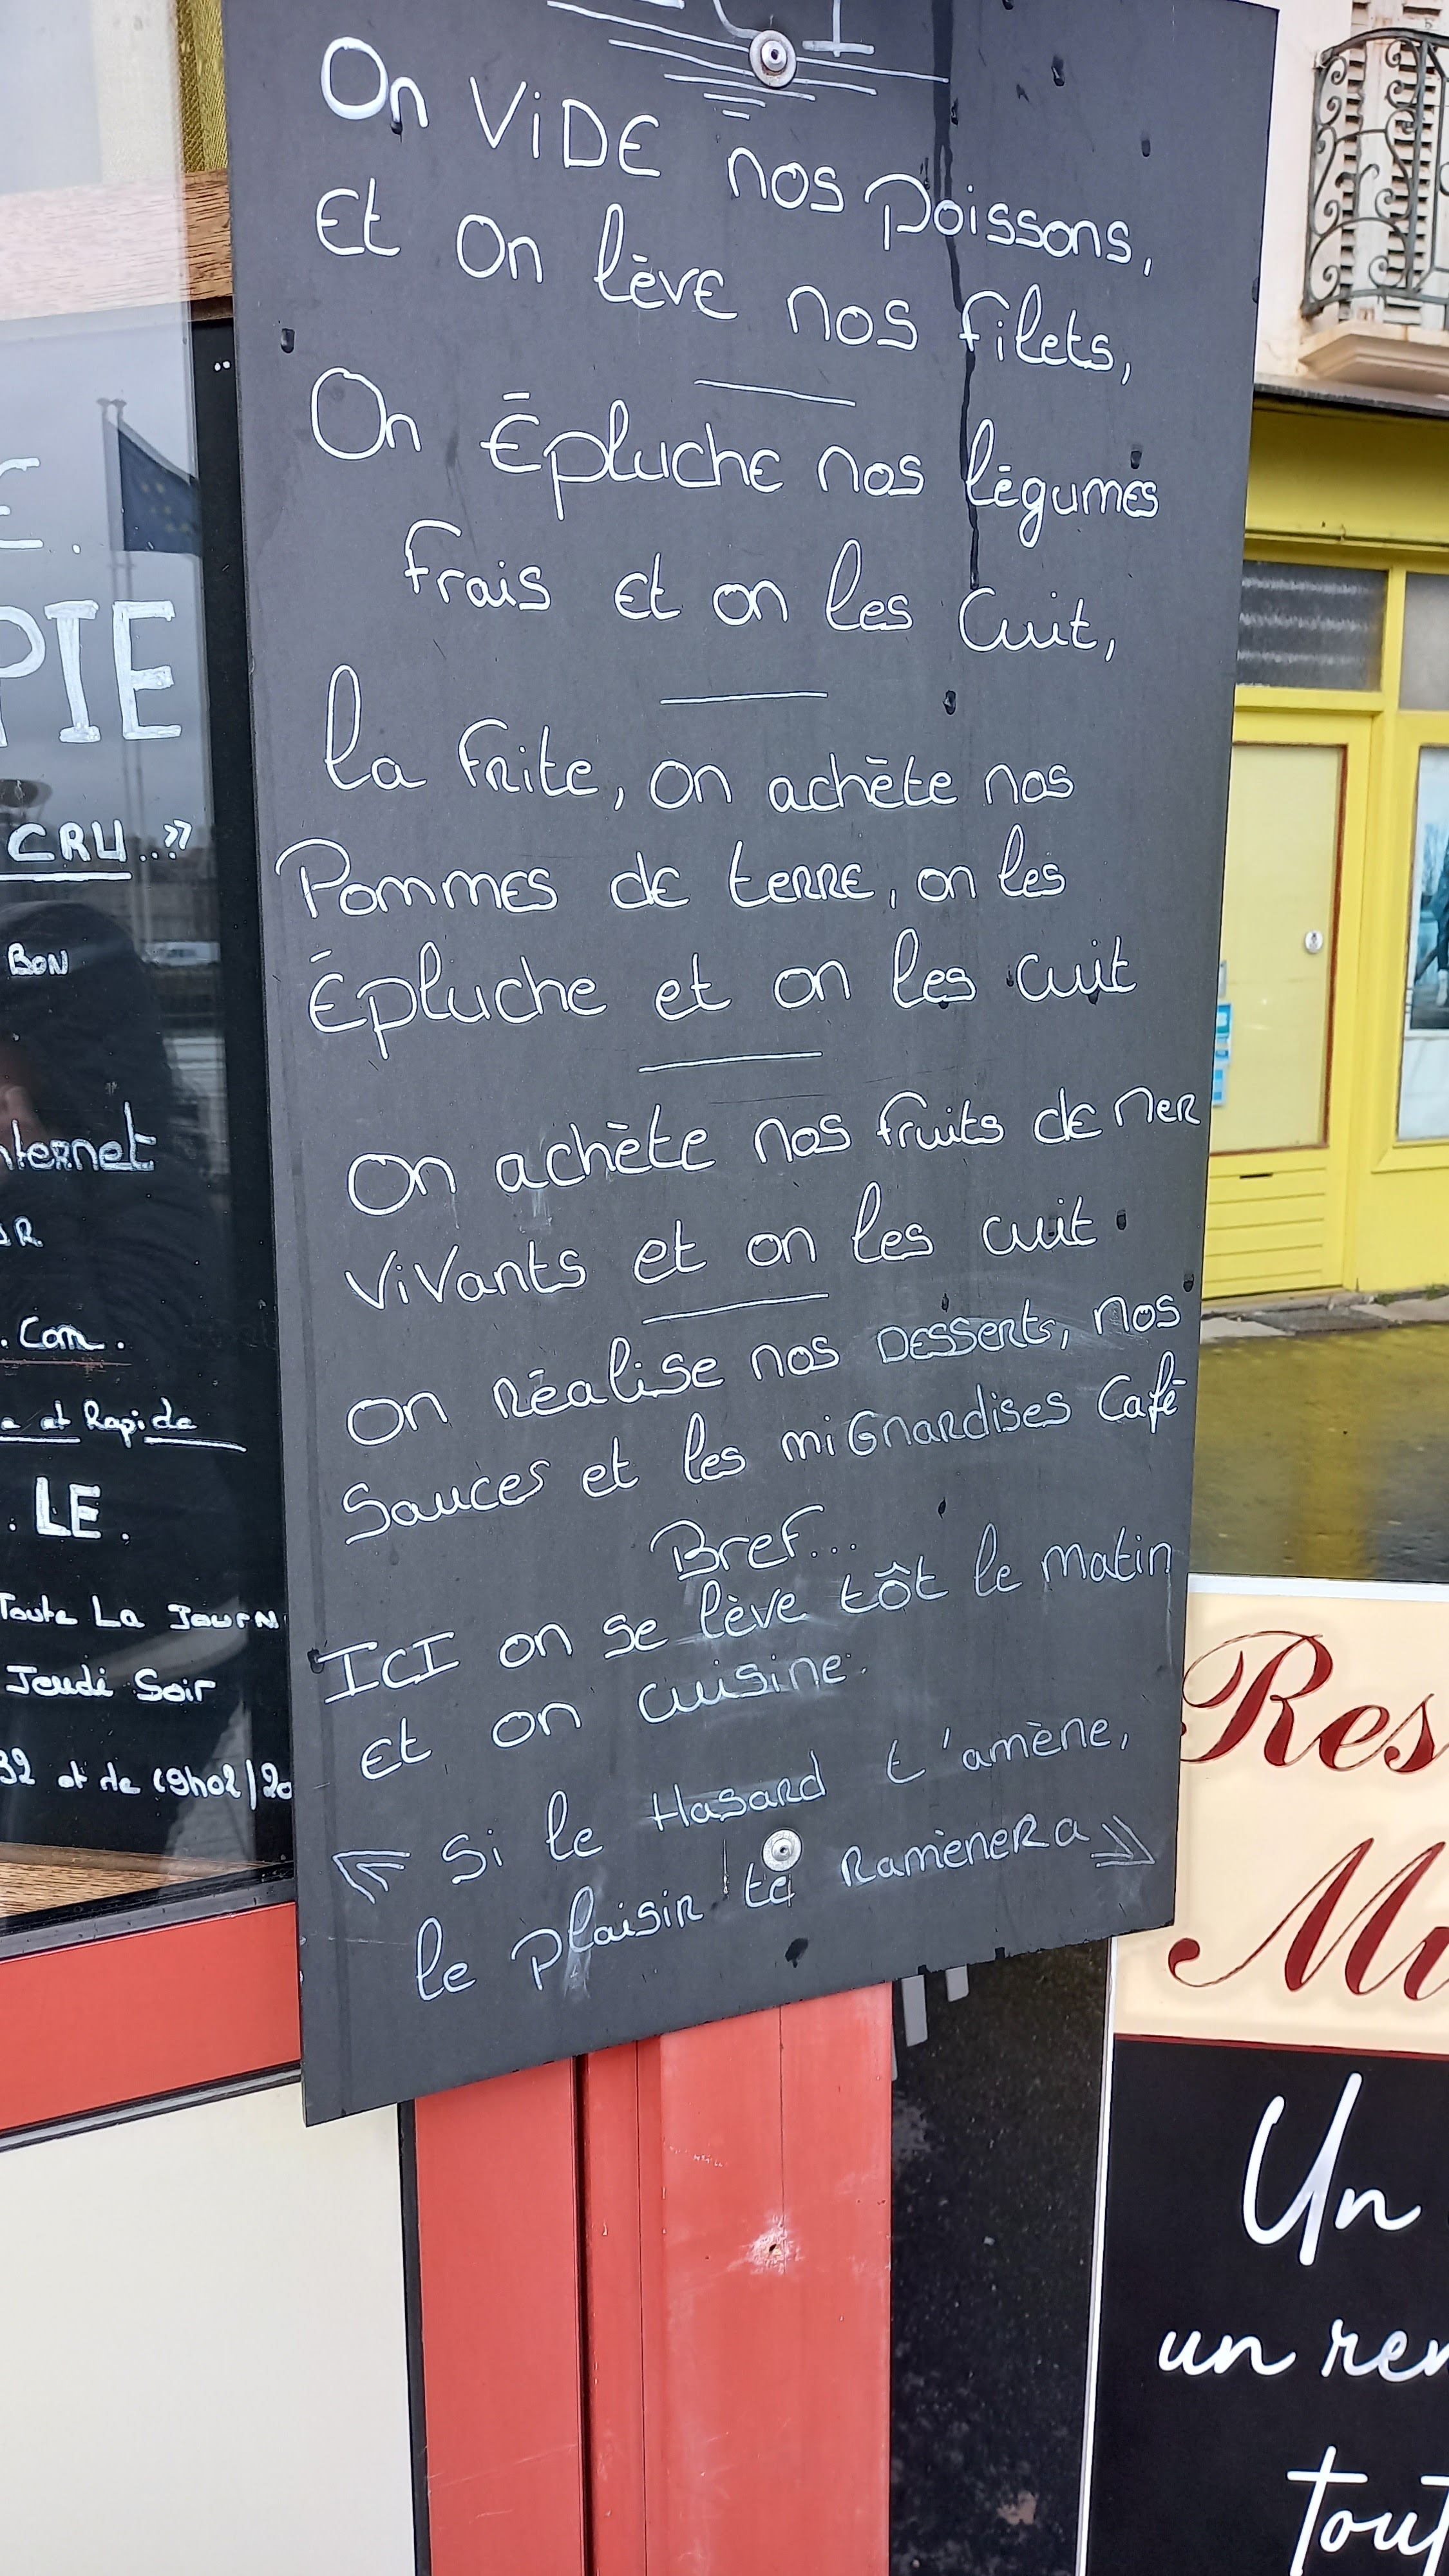 On VIDE nos Poissons,
Et On lève nos filets,
On Épluche nos légumes
frais et on les Cuit,
la frite, on achète nos
Pommes de terre, on les
Épluche et on les cuit
On achète nos fruits de Mer
Vivants et on les cuit
On Réalise nos DESSERTS, nos
Sauces et les miGnardises Café
Bref...
ICI on se lève tôt le matin
et on cuisine.
Si le Hasard t'amène,
le plaisir te Ramènera
PIE
CRU..»
BON
.Com.
et Rapide
. LE .
Toute La
Jeudi Soir
et de 19h02/20
Un
un